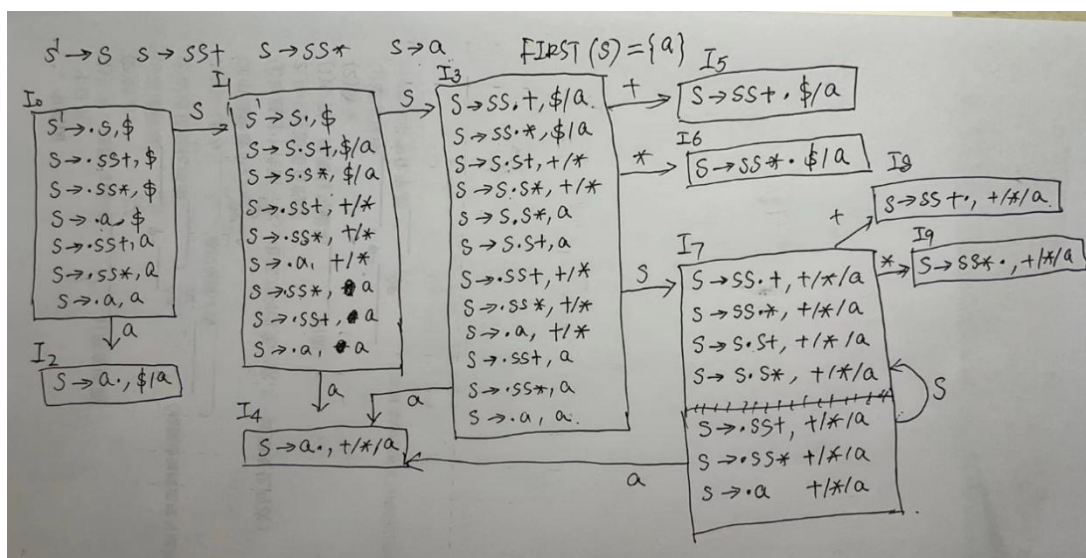 S' → S S → SS+ S → SS* S → a FIRST(S) = {a}
I0
S' → ·S, $
S → ·SS+, $
S → ·SS*, $
S → ·a, $
S → ·SS+, a
S → ·SS*, a
S → ·a, a
S
a
I2
S → a·, $/a
I1
S' → S·, $
S → S·S+, $/a
S → S·S*, $/a
S → ·SS+, +/*
S → ·SS*, +/*
S → ·a, +/*
S → ·SS*, a
S → ·SS+, a
S → ·a, a
S
a
I4
S → a·, +/*/a
I3
S → SS·+, $/a
S → SS·*, $/a
S → S·S+, +/*
S → S·S*, +/*
S → S·S*, a
S → S·S+, a
S → ·SS+, +/*
S → ·SS*, +/*
S → ·a, +/*
S → ·SS+, a
S → ·SS*, a
S → ·a, a
a
+
I5
S → SS+· $/a
*
I6
S → SS*· $/a
S
I7
S → SS·+, +/*/a
S → SS·*, +/*/a
S → S·S+, +/*/a
S → S·S*, +/*/a
S → ·SS+, +/*/a
S → ·SS* +/*/a
S → ·a +/*/a
S
a
+
I8
S → SS+·, +/*/a
*
I9
S → SS*·, +/*/a